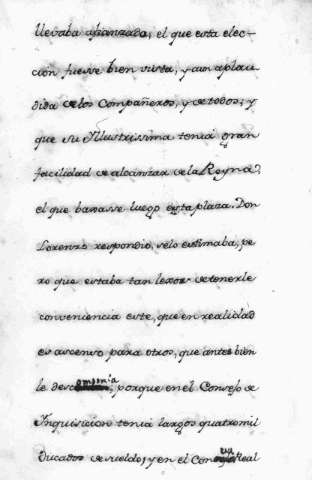 llevaba afianzado, el que esta elec-
cion fuesse bien vista, y aun aplau
dida de los Compañeros, y de todos; y
que su Illustrissima tenia gran
facilidad de alcánzar de la Reyna,
el que baxasse luego esta plaza. Don
Lorenzo respondio, selo estimaba, pe
ro que estaba tan lexos de tenerle
conveniencia este, que en realidad
es ascenso para otros, que antes bien
le descomponia, porque en el Consejo de
Inquisicion tenia largos quatro mil
Ducados de sueldo; y en el Real